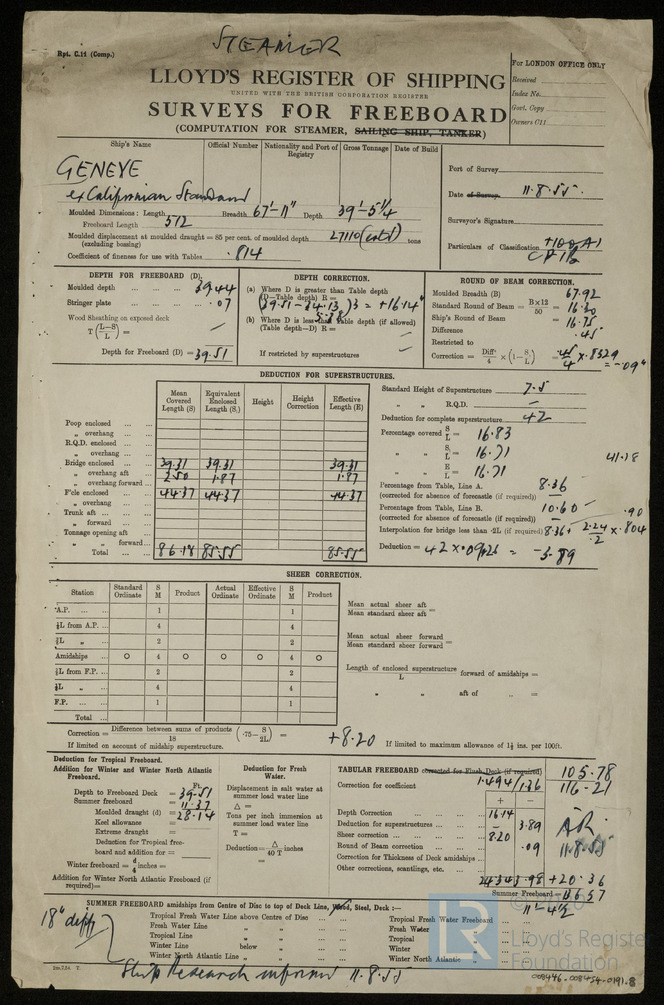 STEAMER
Rpt. C.11 (Comp.)
LLOYD'S REGISTER OF SHIPPING
UNITED WITH THE BRITISH CORPORATION REGISTER
SURVEYS FOR FREEBOARD
(COMPUTATION FOR STEAMER, SAILING SHIP, TANKER)
For LONDON OFFICE ONLY
Received
Index No.
Govt. Copy
Owners C11
Ship's Name
Official Number
Nationality and Port of Registry
Gross Tonnage
Date of Build
GENEVE
ex Californian Standard
Port of Survey
Date of Survey 11.8.55.
Surveyor's Signature
Particulars of Classification +100A1
Moulded Dimensions: Length Breadth 67'-11" Depth 39'-5 1/4
Freeboard Length 512
Moulded displacement at moulded draught = 85 per cent. of moulded depth 27110 (estd) tons
(excluding bossing)
Coefficient of fineness for use with Tables .814
DEPTH FOR FREEBOARD (D).
Moulded depth 39.44
Stringer plate .07
Wood Sheathing on exposed deck
T (L-S/L) =
Depth for Freeboard (D) = 39.51
DEPTH CORRECTION.
(a) Where D is greater than Table depth
(D-Table depth) R =
(39.51 - 34.13) 3 = +16.14"
5.38
(b) Where D is less than Table depth (if allowed)
(Table depth-D) R =
If restricted by superstructures
ROUND OF BEAM CORRECTION.
Moulded Breadth (B) 67.92
Standard Round of Beam = B×12/50 = 16.30
Ship's Round of Beam = 16.75
Difference .45
Restricted to
Correction = Diff/4 × (1-S/L) = .45/4 × .8329 = -.09"
DEDUCTION FOR SUPERSTRUCTURES.
Mean Covered Length (S)
Equivalent Enclosed Length (S1)
Height
Height Correction
Effective Length (E)
Poop enclosed
„ overhang
R.Q.D. enclosed
„ overhang
Bridge enclosed 39.31 39.31 39.31
„ overhang aft 2.50 1.87 1.87
„ overhang forward
F'cle enclosed 44.37 44.37 44.37
„ overhang
Trunk aft
„ forward
Tonnage opening aft
„ „ forward
Total 86.18 85.55 85.55
Standard Height of Superstructure 7.5
„ „ R.Q.D. —
Deduction for complete superstructure 42
Percentage covered S/L = 16.83
„ „ S1/L = 16.71
„ „ E/L = 16.71
41.18
Percentage from Table, Line A. 8.36
(corrected for absence of forecastle (if required))
Percentage from Table, Line B. 10.60
(corrected for absence of forecastle (if required))
.90
Interpolation for bridge less than .2L (if required) 8.36 + 2.24/.2 × .804
Deduction = 42 × .0926 = -3.89
SHEER CORRECTION.
Station
Standard Ordinate
S M
Product
Actual Ordinate
Effective Ordinate
S M
Product
A.P. 1 1
⅙L from A.P. 4 4
⅓L „ 2 2
Amidships O 4 O O O 4 O
⅓L from F.P. 2 2
⅙L „ 4 4
F.P. 1 1
Total
Mean actual sheer aft
Mean standard sheer aft =
Mean actual sheer forward
Mean standard sheer forward =
Length of enclosed superstructure
L forward of amidships =
„ „ aft of „ =
Correction = Difference between sums of products/18 (.75 - S/2L) =
+8.20
If limited on account of midship superstructure.
If limited to maximum allowance of 1½ ins. per 100ft.
Deduction for Tropical Freeboard.
Addition for Winter and Winter North Atlantic Freeboard.
Ft.
Depth to Freeboard Deck = 39.51
Summer freeboard = 11.37
Moulded draught (d) = 28.14
Keel allowance =
Extreme draught =
Deduction for Tropical freeboard and addition for =
Winter freeboard = d/4 inches =
Addition for Winter North Atlantic Freeboard (if required) =
Deduction for Fresh Water.
Displacement in salt water at summer load water line
Δ =
Tons per inch immersion at summer load water line
T =
Deduction = Δ/40 T inches
=
TABULAR FREEBOARD corrected for Flush Deck (if required) 105.78
Correction for coefficient 1.494/1.36 116.21
+ −
Depth Correction 16.14
Deduction for superstructures — 3.89
Sheer correction 8.20
Round of Beam correction .09
Correction for Thickness of Deck amidships
Other corrections, scantlings, etc.
24.34 3.98 +20.36
Summer Freeboard = 136.57
11'-4½
11.8.55
SUMMER FREEBOARD amidships from Centre of Disc to top of Deck Line, Wood, Steel, Deck :—
18" diff
Tropical Fresh Water Line above Centre of Disc
Fresh Water Line „ „
Tropical Line „ „
Winter Line below „
Winter North Atlantic Line „ „
Tropical Fresh Water Freeboard
Fresh Water „
Tropical „
Winter „
Winter North Atlantic „
Ship Research informed 11.8.55
LR
Lloyd's Register
Foundation
008446-008454-0191.8